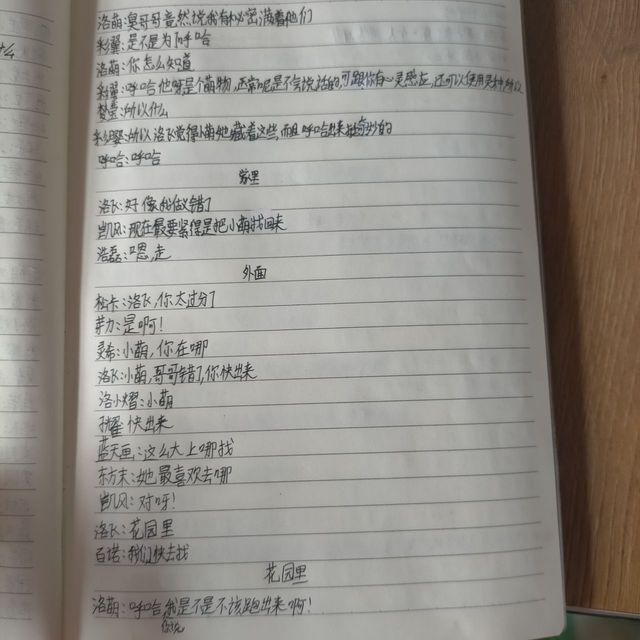 洛萌:臭哥哥竟然说我有秘密满着他们
彩翼:是不是为了呼哈
洛萌:你怎么知道
彩翼:呼哈他呀是个萌物,还常呢是不会说话的,可跟你有心灵感应,还可以使用灵神,所以
梦蜜:所以什么
彩翼:所以洛飞觉得小萌她藏着这些,而且呼哈出来挺奇妙的
呼哈:呼哈
家里
洛飞:好像我们又错了
凯风:现在最要紧得是把小萌找回来
浩磊:嗯,走
外面
松卡:洛飞,你太过分了
芽力:是啊!
灵希:小萌,你在哪
洛飞:小萌,哥哥错了,你快出来
洛小熠:小萌
快出来
蓝天画:这么大上哪找
东方末:她最喜欢去哪
凯风:对呀!
洛飞:花园里
百诺:我们快去找
花园里
洛萌:呼哈,你说我是不是不该跑出来啊!